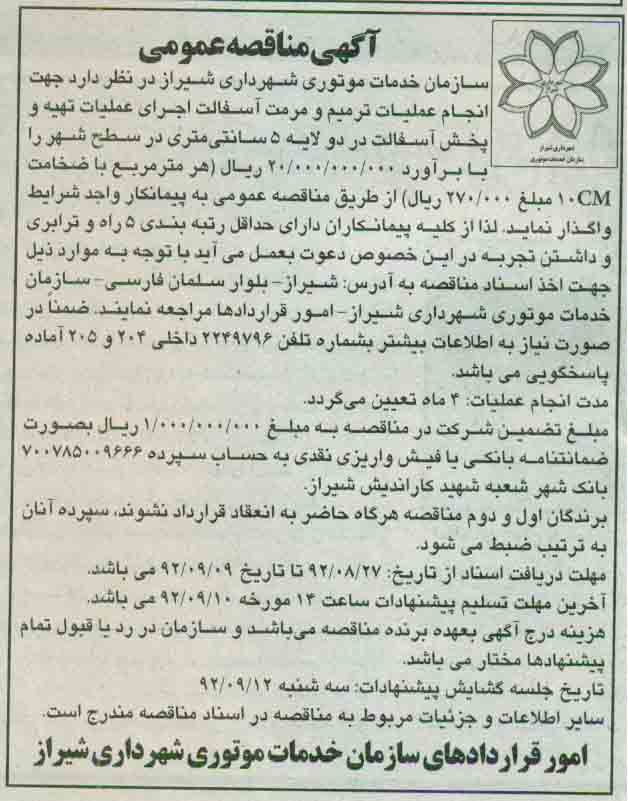 آگهی مناقصه عمومی
شهرداری شیراز
سازمان خدمات موتوری
سازمان خدمات موتوری شهرداری شیراز در نظر دارد جهت
انجام عملیات ترمیم و مرمت آسفالت اجرای عملیات تهیه و
پخش آسفالت در دو لایه ۵ سانتی‌متری در سطح شهر را
با برآورد ۲۰/۰۰۰/۰۰۰/۰۰۰ ریال (هر مترمربع با ضخامت
۱۰CM مبلغ ۲۷۰/۰۰۰ ریال) از طریق مناقصه عمومی به پیمانکار واجد شرایط
واگذار نماید. لذا از کلیه پیمانکاران دارای حداقل رتبه بندی ۵ راه و ترابری
و داشتن تجربه در این خصوص دعوت بعمل می آید با توجه به موارد ذیل
جهت اخذ اسناد مناقصه به آدرس: شیراز- بلوار سلمان فارسی- سازمان
خدمات موتوری شهرداری شیراز- امور قراردادها مراجعه نمایند. ضمناً در
صورت نیاز به اطلاعات بیشتر بشماره تلفن ۲۲۴۹۷۹۶ داخلی ۲۰۴ و ۲۰۵ آماده
پاسخگویی می باشد.
مدت انجام عملیات: ۴ ماه تعیین می‌گردد.
مبلغ تضمین شرکت در مناقصه به مبلغ ۱/۰۰۰/۰۰۰/۰۰۰ ریال بصورت
ضمانتنامه بانکی یا فیش واریزی نقدی به حساب سپرده ۷۰۰۷۸۵۰۰۹۶۶۶
بانک شهر شعبه شهید کاراندیش شیراز.
برندگان اول و دوم مناقصه هرگاه حاضر به انعقاد قرارداد نشوند، سپرده آنان
به ترتیب ضبط می شود.
مهلت دریافت اسناد از تاریخ: ۹۲/۰۸/۲۷ تا تاریخ ۹۲/۰۹/۰۹ می باشد.
آخرین مهلت تسلیم پیشنهادات ساعت ۱۴ مورخه ۹۲/۰۹/۱۰ می باشد.
هزینه درج آگهی بعهده برنده مناقصه می‌باشد و سازمان در رد یا قبول تمام
پیشنهادها مختار می باشد.
تاریخ جلسه گشایش پیشنهادات: سه شنبه ۹۲/۰۹/۱۲
سایر اطلاعات و جزئیات مربوط به مناقصه در اسناد مناقصه مندرج است.
امور قراردادهای سازمان خدمات موتوری شهرداری شیراز